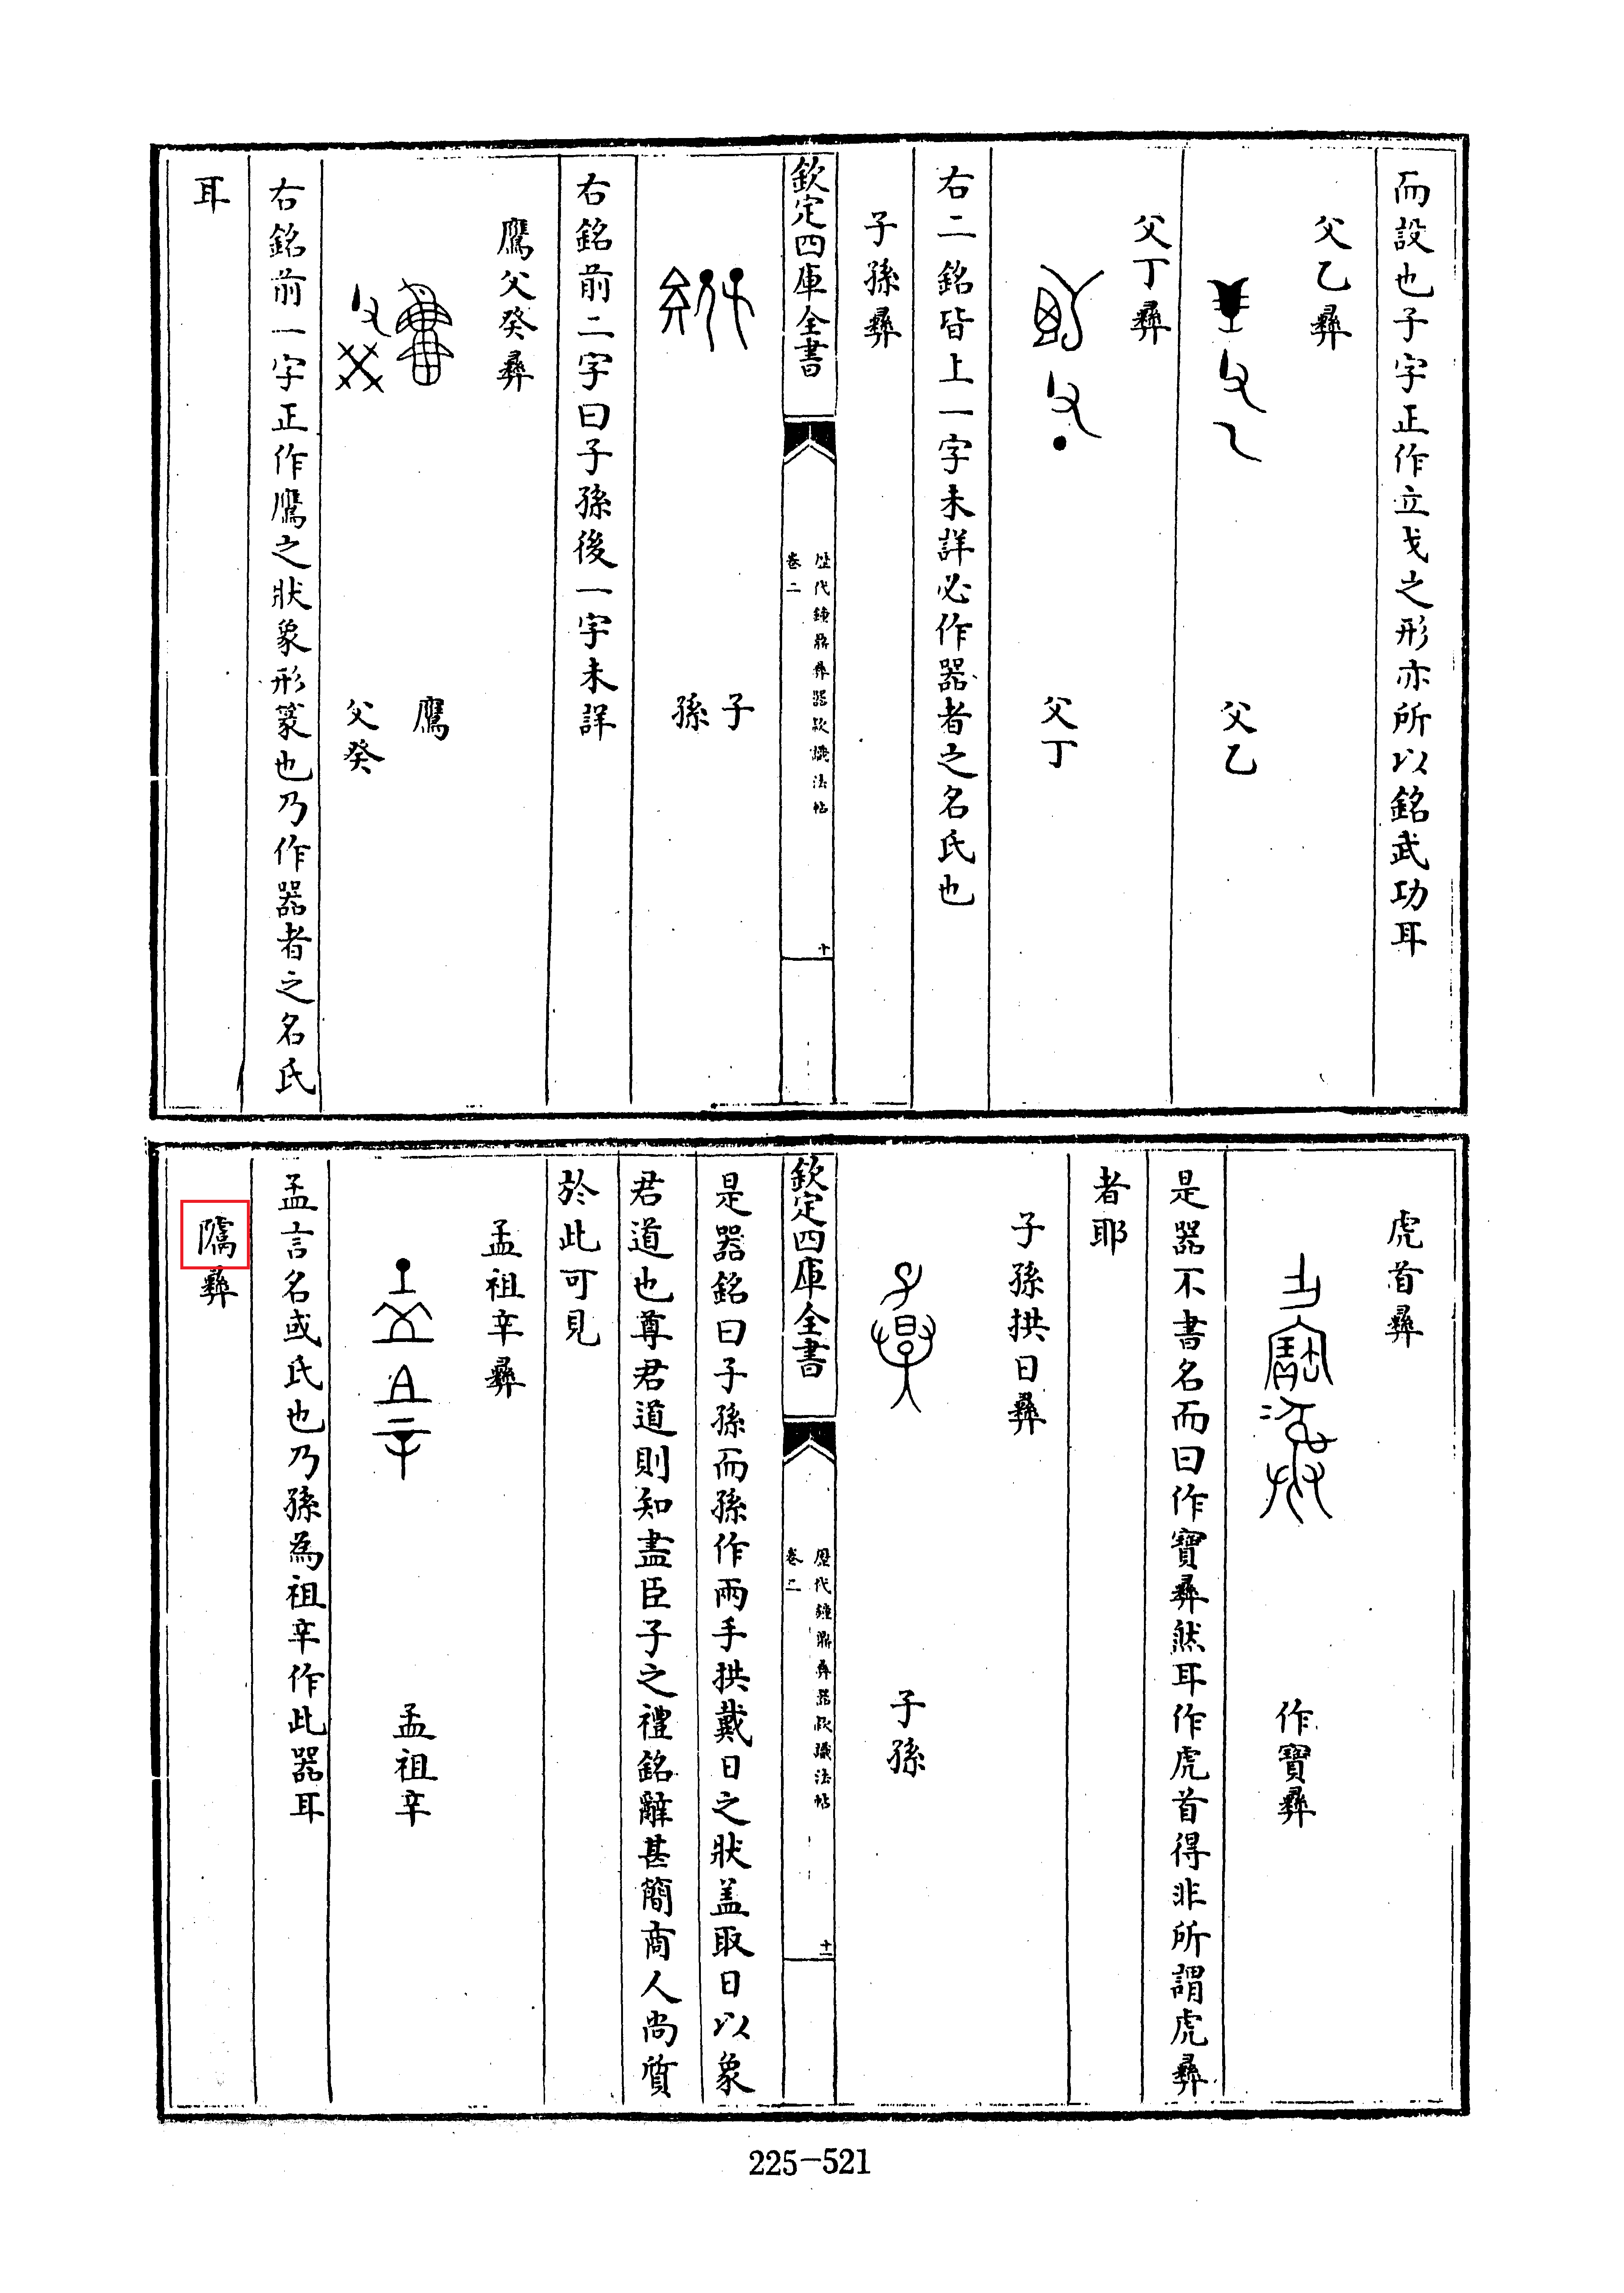 而設也子字正作立戈之形亦所以銘武功耳
父乙彝
父乙
父丁彝
父丁
右二銘皆上一字未詳必作器者之名氏也
子孫彝
欽定四庫全書
歴代鐘鼎彝器款識法帖
卷二
十
子
孫
右銘前二字曰子孫後一字未詳
鷹父癸彝
鷹
父癸
右銘前一字正作鷹之狀象形篆也乃作器者之名氏
耳
虎首彝
作寶彝
是器不書名而曰作寶彝然耳作虎首得非所謂虎彝
者耶
子孫拱日彝
子孫
欽定四庫全書
歷代鐘鼎彝器款識法帖
卷二
十一
是器銘曰子孫而孫作兩手拱戴日之狀盖取日以象
君道也尊君道則知盡臣子之禮銘辭甚簡商人尚質
於此可見
孟祖辛彝
孟祖辛
孟言名或氏也乃孫為祖辛作此器耳
彝
225-521